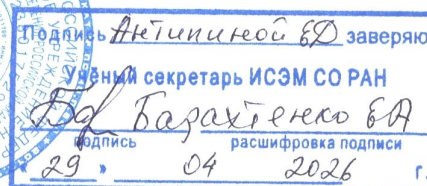 Подпись Антипиной ЕД заверяю
Учёный секретарь ИСЭМ СО РАН
Барахтенко ЕА
подпись расшифровка подписи
« 29 » 04 2026 г.